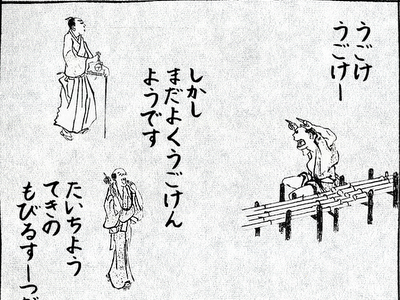 うごけ
うごけー
しかし
まだよくうごけん
ようです
たいちよう
てきの
もびるすーつが